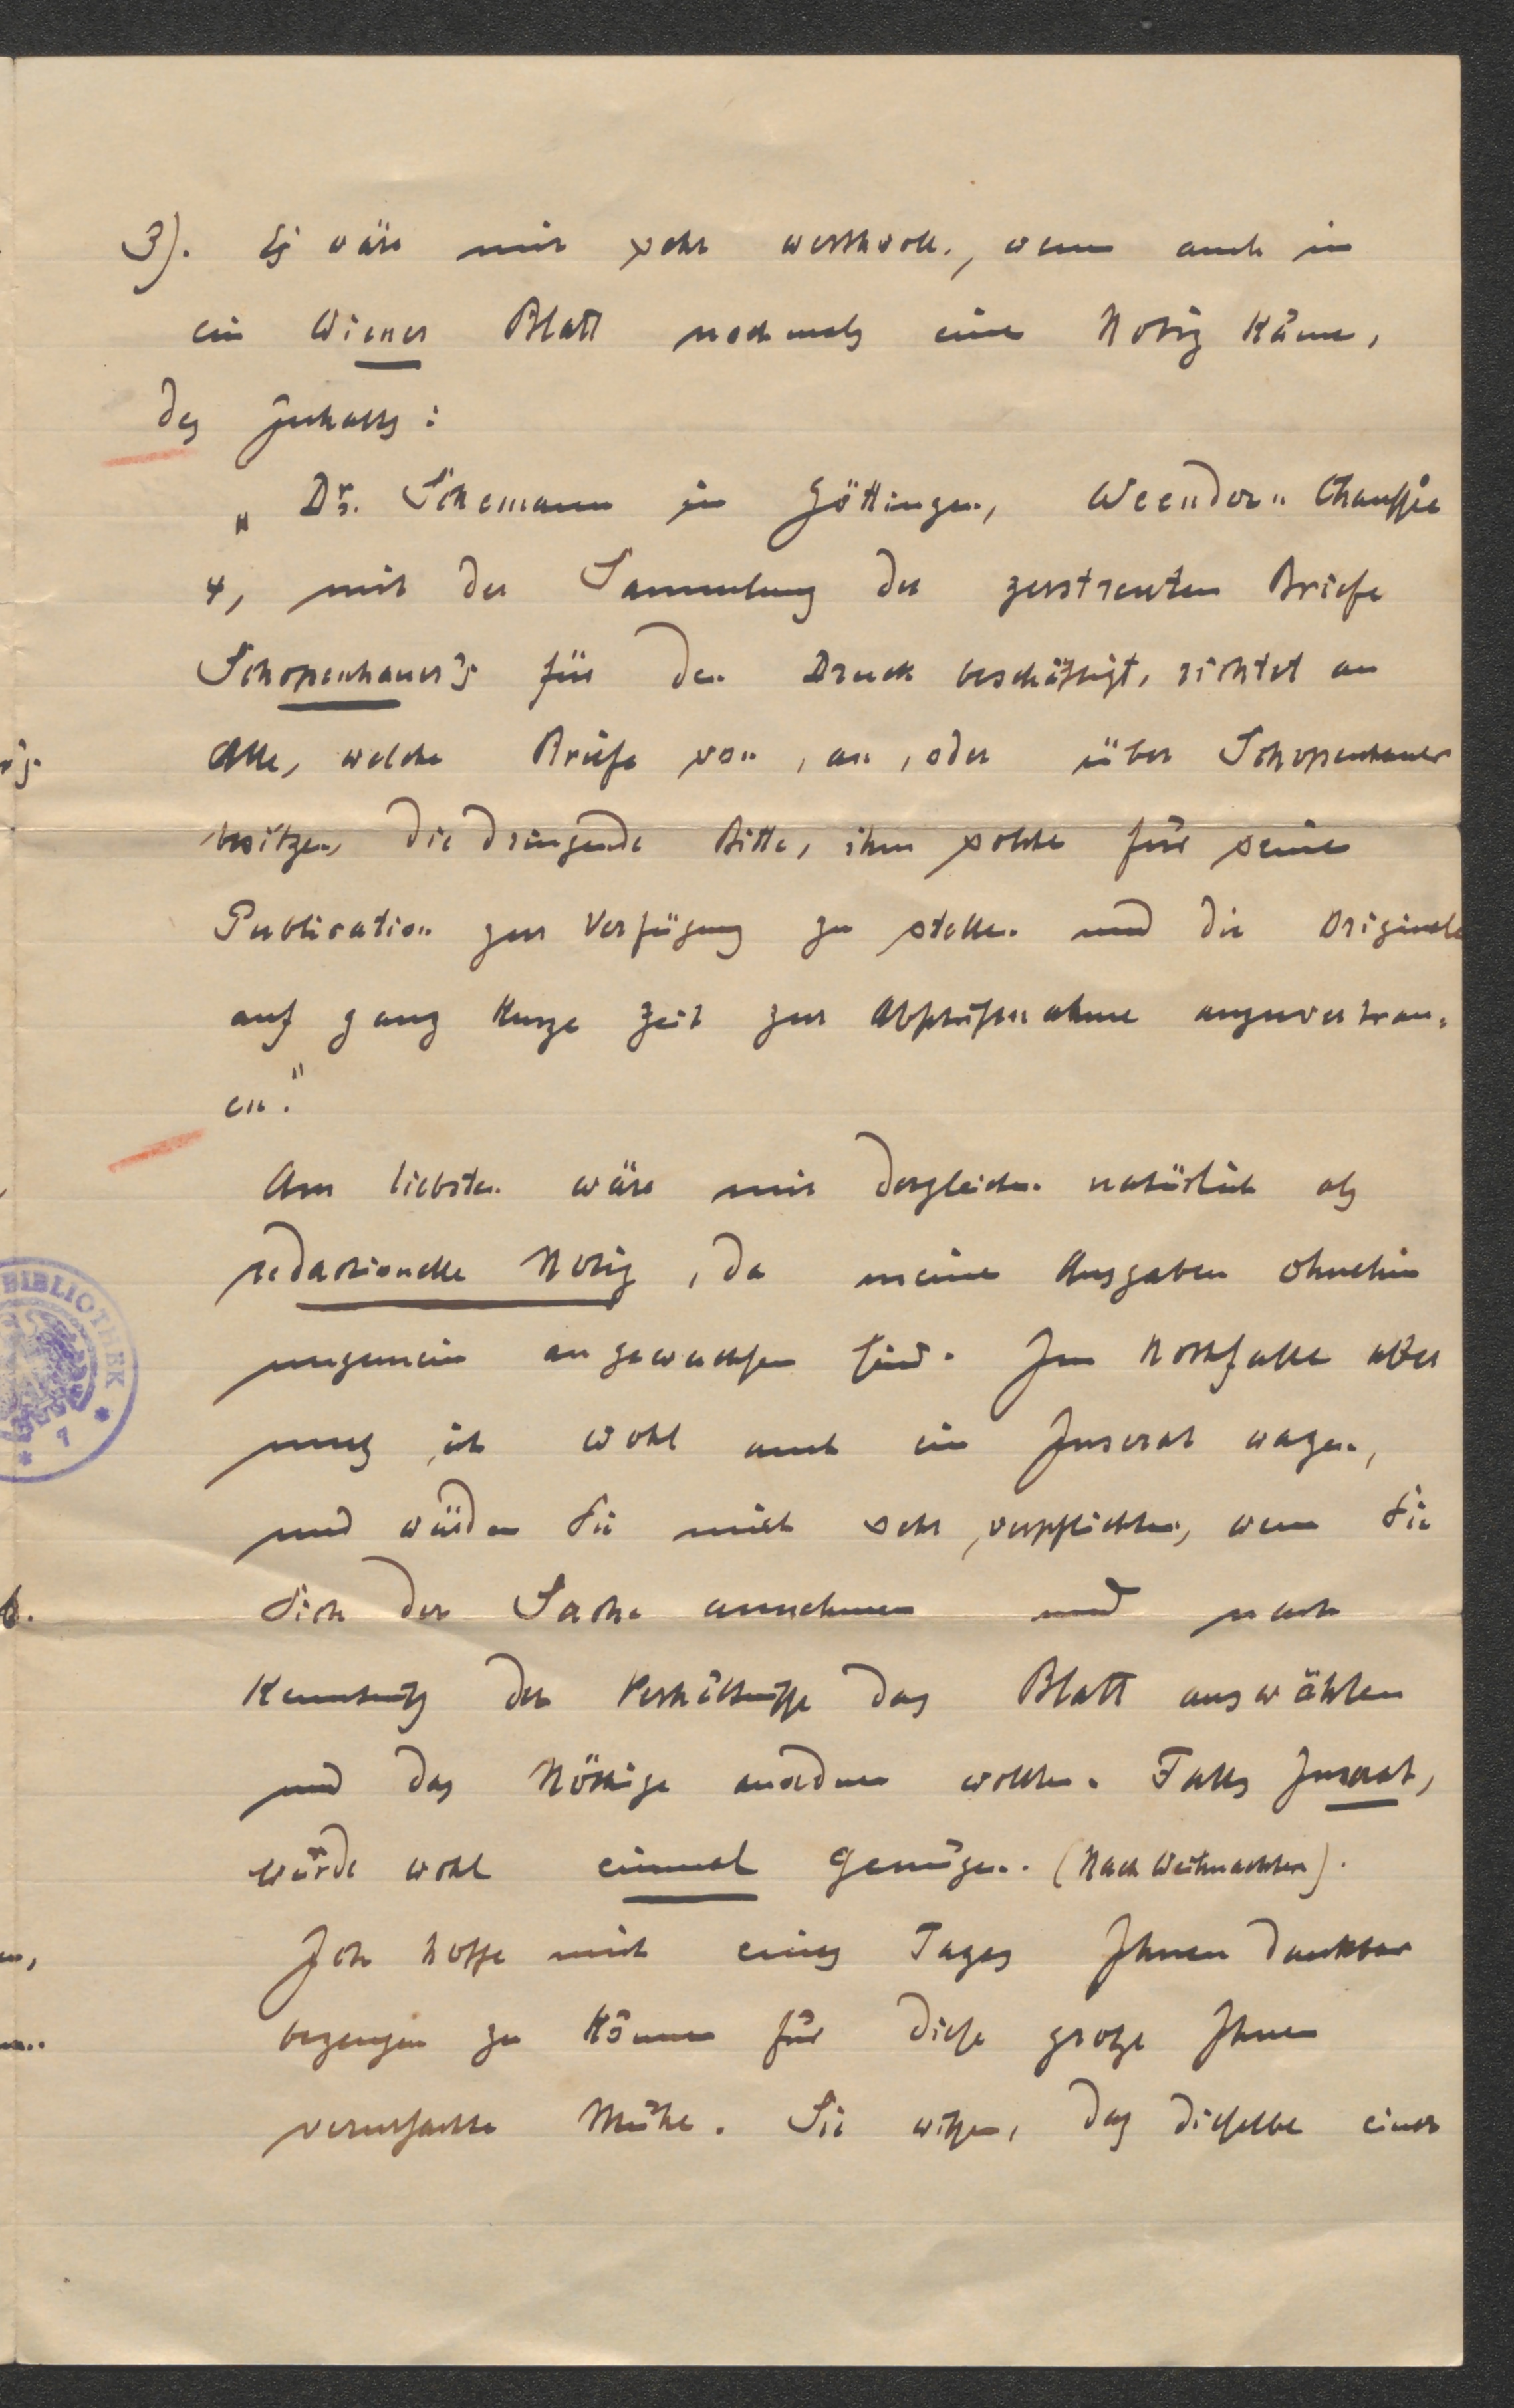 3). Es wäre mir sehr werthvoll, wenn auch in
ein Wiener Blatt nochmals eine Notiz käme,
des Inhalts:
„Dr. Schemann in Göttingen, Weender-Chaussée
4, mit der Sammlung der zerstreuten Briefe
Schopenhauer's für den Druck beschäftigt, richtet an
Alle, welche Briefe von, an, oder über Schopenhauer
besitzen, die dringende Bitte, ihm solche für seine
Publication zur Verfügung zu stellen und die Originale
auf ganz kurze Zeit zur Abschriftnahme anzuvertrau-
en."
Am liebsten wäre mir dergleichen natürlich als
redactionelle Notiz, da meine Ausgaben ohnehin
ungemein angewachsen sind. Im Nothfalle aber
muß ich wohl auch ein Inserat wagen,
und würden Sie mich sehr verpflichten, wenn Sie
Sich der Sache annehmen und nach
Kenntniß der Verhältnisse das Blatt auswählen
und das Nöthige anordnen wollten. Falls Inserat,
würde wohl einmal genügen. (Nach Weihnachten).
Ich hoffe mich eines Tages Ihnen dankbar
bezeugen zu können für diese große Ihnen
verursachte Mühe. Sie wissen, daß dieselbe einer
BIBLIOTHEK
* 7 *